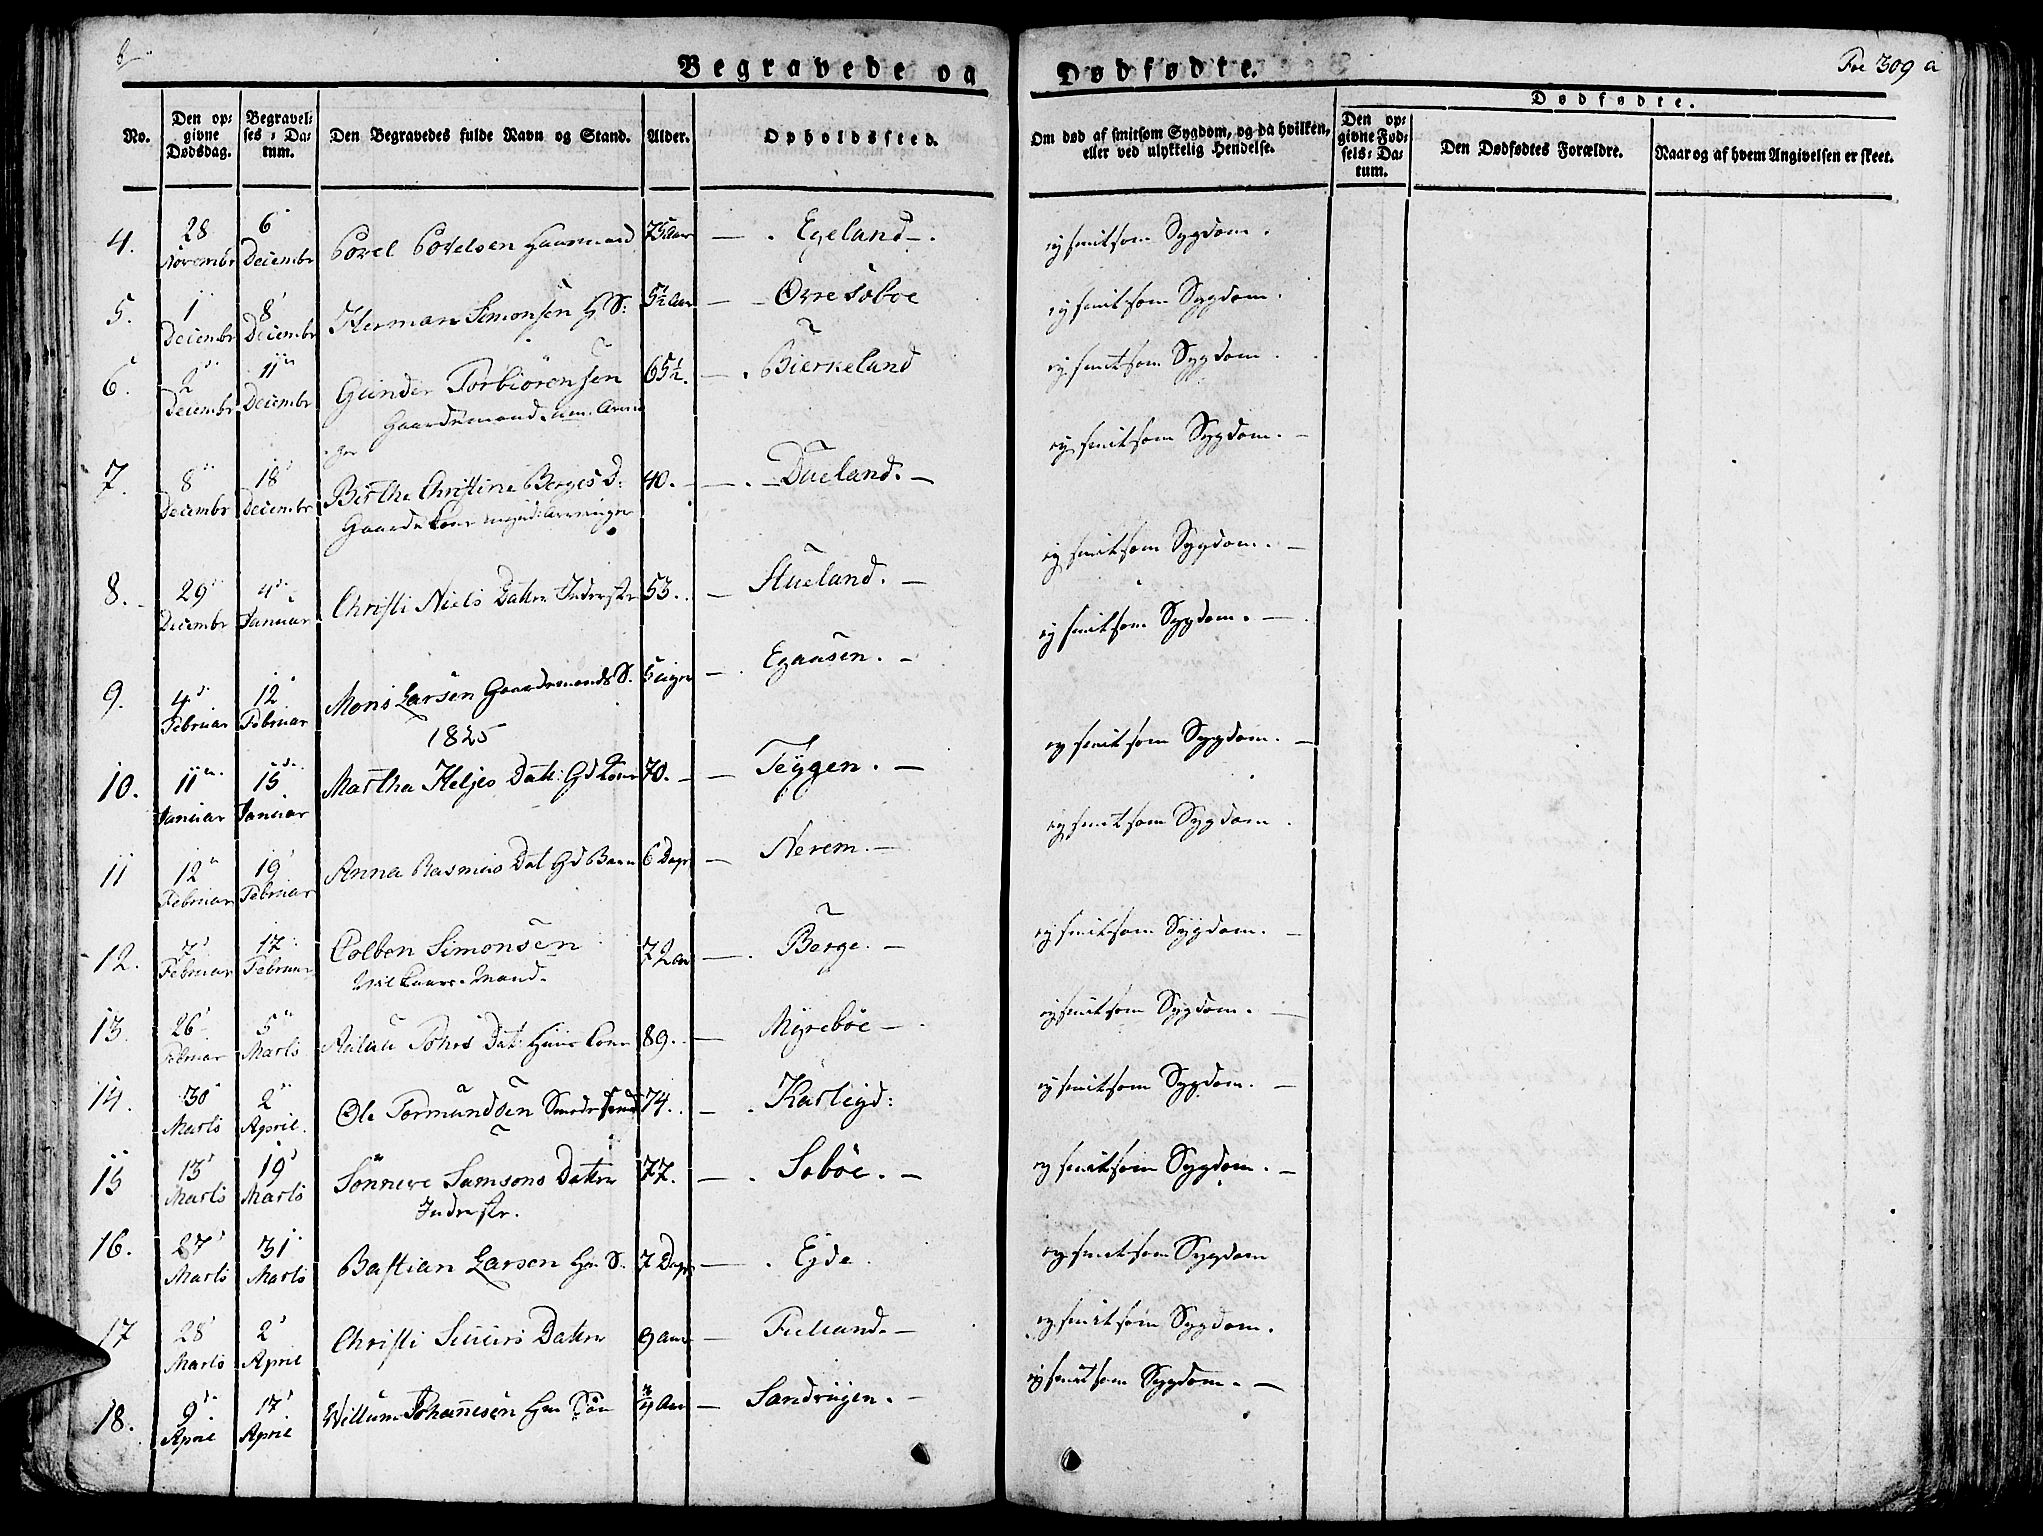 Begravede og Dødfødte.
Foe 309 a
Dødfødte.
No.
Den opgivne Dødsdag.
Begravelses-Datum.
Den Begravedes fulde Navn og Stand.
Alder.
Opholdssted.
Om død af smitsom Sygdom, og da hvilken, eller ved ulykkelig Hendelse.
Den opgivne Fødsels-Datum.
Den Dødfødtes Forældre.
Naar og af hvem Angivelsen er skeet.
4. 28 Novembr 6 Decembr Povel Povelsen Huusmand 75 Aar — Egeland —. ej smitsom Sygdom.
5. 1 Decembr 8 Decembr Herman Simonsen G. S: 5½ Aar — Øvre Søboe ej smitsom Sygdom.
6. 2 Decembr 11 Decembr Gunder Torbiörensen 65½. — Bierkeland ej smitsom Sygdom.
Gaardemand
7. 8 Decembr 18 Decembr Birthe Christine Berges D: 40. — Dueland. — ej smitsom Sygdom. —
Gaard Kone
8. 29 Decembr 4 Januar Christi Niels Datter Inderstr 53. — Stueland. — ej smitsom Sygdom. —
9. 4 Februar 12 Februar Mons Larsen Gaardemands S. 5 uger — Egaasen. — ej smitsom Sygdom. —
1825
10. 11 Januar 15 Januar Martha Heljes Datt: Gd Kone 70. — Teygen. — ej smitsom Sygdom. —
11 12 Februar 19 Februar Anna Rasmus Dat Gd Barn 6 Dage — Nerem. — ej smitsom Sygdom.
12. 7 Februar 17 Februar Colben Simonsen 72 aar — Berge. — ej smitsom Sygdom. —
Vilkaars Mand.
13. 26 Februar 5 Marts Johns Dat: Huus Kone 89. — Myrebøe — ej smitsom Sygdom. —
14. 30 Marts 2 April. Ole Tormundsen 74. — ej smitsom Sygdom. —
15 13 Marts 19 Marts Sönneve Samsons Datter 77. — Søbøe. — ej smitsom Sygdom. —
Inderstr.
16. 27 Marts 31 Marts Bastian Larsen Gm S. 7 Dage — Ejde. ej smitsom Sygdom
17 28 Marts 2 April Christi Siuurs Datter 9 aar — — ej smitsom Sygdom.
18. 9 April 17 April Willum Johannesen Gm Sön Aar — — ej smitsom Sygdom. —